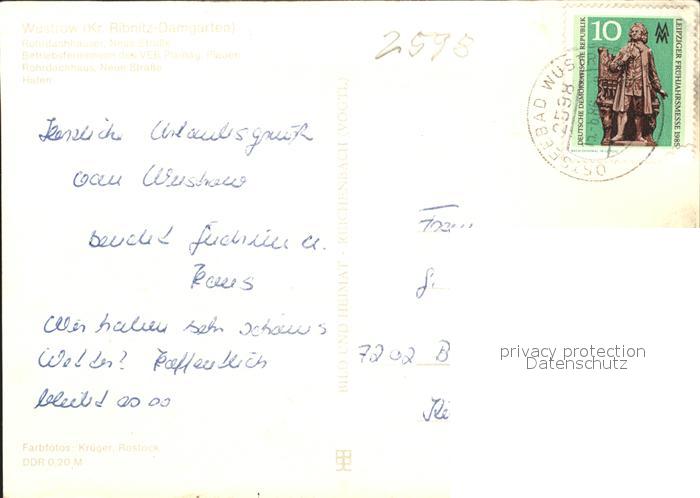 Wustrow (Kr. Ribnitz-Damgarten)
Rohrdachhäuser, Neue Straße
Betriebsferienheim des VEB Plamag, Plauen
Rohrdachhaus, Neue Straße
Hafen
2598
10
DEUTSCHE DEMOKRATISCHE REPUBLIK
LEIPZIGER FRÜHJAHRSMESSE 1985
OSTSEEBAD WUST
2598
Herzliche Urlaubsgrüße
aus Wustrow
sendet Gudrun u.
Hans
Wir haben sehr schönes
Wetter! Hoffentlich
bleibt es so
BILD UND HEIMAT · REICHENBACH (VOGTL.)
Fram
7202 B
Farbfotos: Krüger, Rostock
DDR 0,20 M
privacy protection
Datenschutz